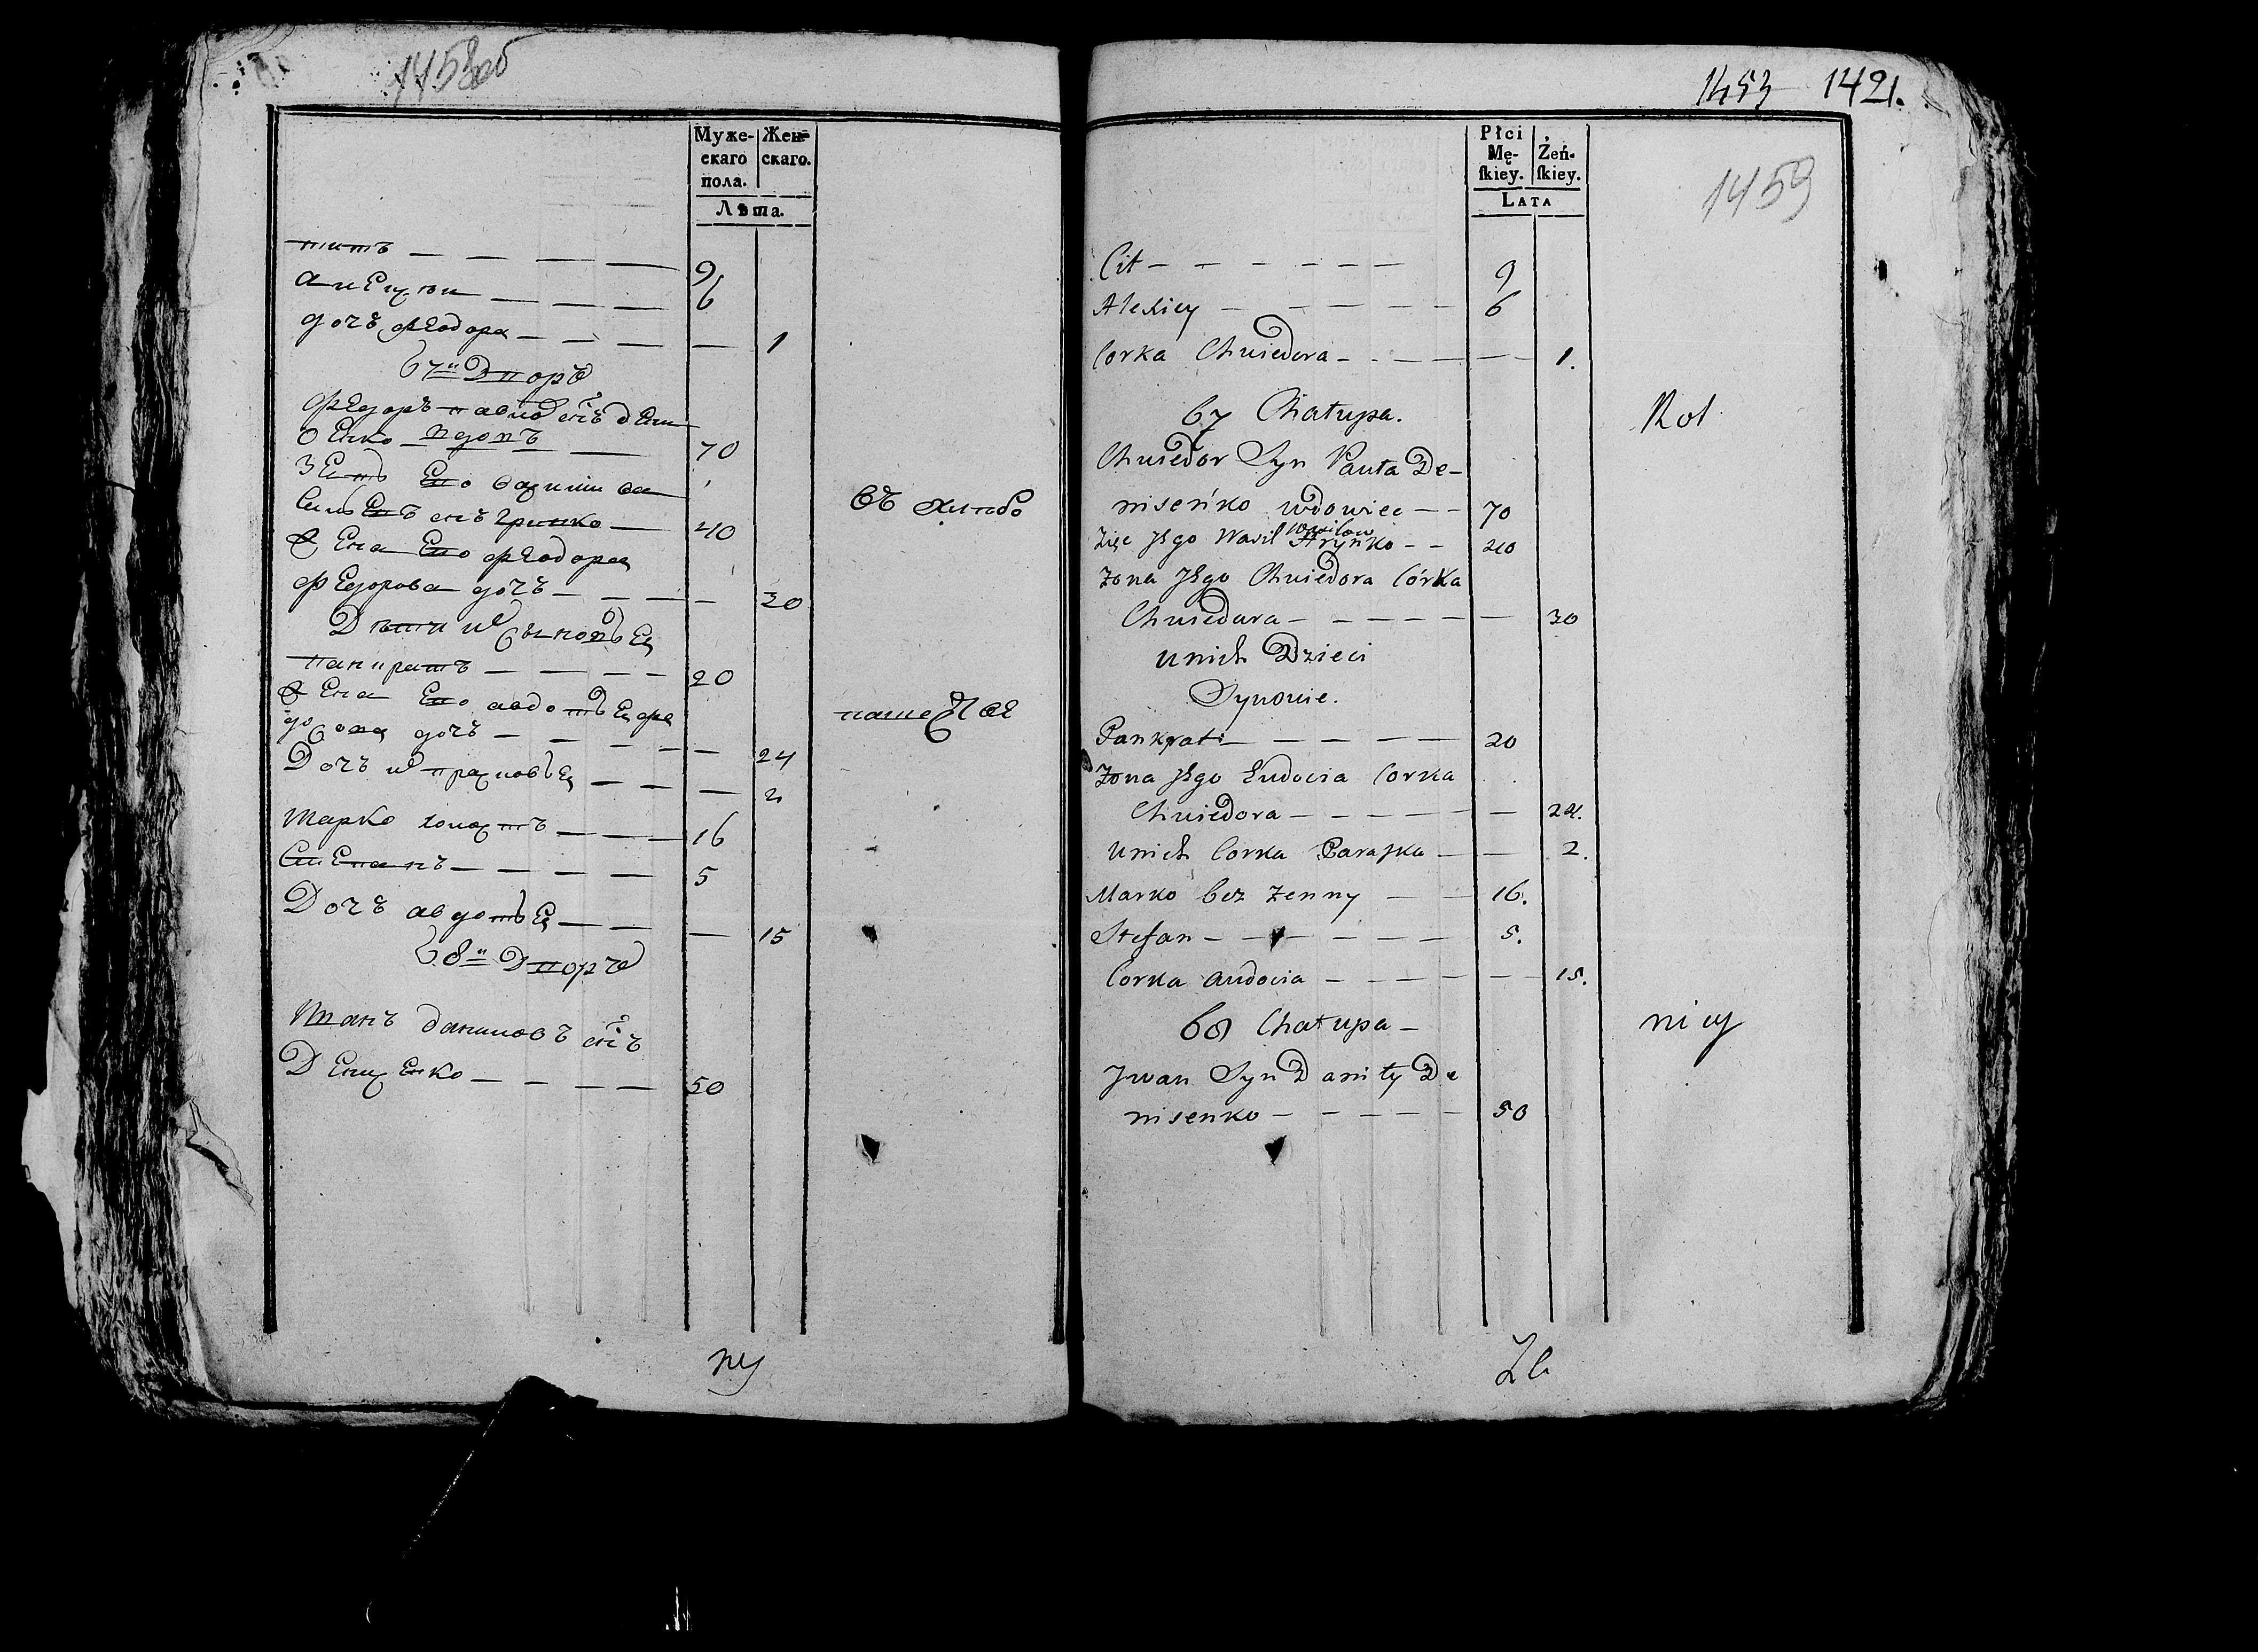 1453об
Муже-
скаго
пола.
Жен-
скаго.
Лѣта.
титъ — — — — 9
алеѯѣи — — — — 6
дочъ феодора — — — — 1
67й Дворъ
федоръ павловъ снъ дени
сенко вдовъ — 70
зеть его
снъ гринко — 40
жена его феодора
федорова дочъ — — — — 30
Дѣти
панкратъ — — — — 20
жена его авдотья фе
дорова дочъ — — — — 24
Дочъ — — — 2
марко холостъ — — 16
Степанъ — — — — 5
Дочъ авдотья — — — 15
68й Дворъ
Иванъ даниловъ снъ
Денисенко — — — — 50
въ
1453 1421.
1459
Płci
Mę-
ſkiey.
Żeń-
ſkiey.
LATA
Cit — — — — — — 9
Alexiey — — — — — 6
Corka Chwiedora — — — — — 1.
67 Chałupa.
Rot
Chwiedor Syn Pauła De-
niseńko wdowiec — — 70
Zięć Jego Wasil Wasilow Hryńko — — 40
Żona Jego Chwiedora Córka
Chwiedura — — — — — — 30
unich Dzieci
Synowie.
Pankrati — — — — — 20
Żona Jego Eudocia Corka
Chwiedora — — — — — — 24.
unich Corka Paraska — — 2.
Marko bez Żenny — — 16.
Stefan — — — — — — 5.
Corka Audocia — — — — — 15.
68 Chałupa —
Jwan Syn Daniły De
nisenko — — — — — 50